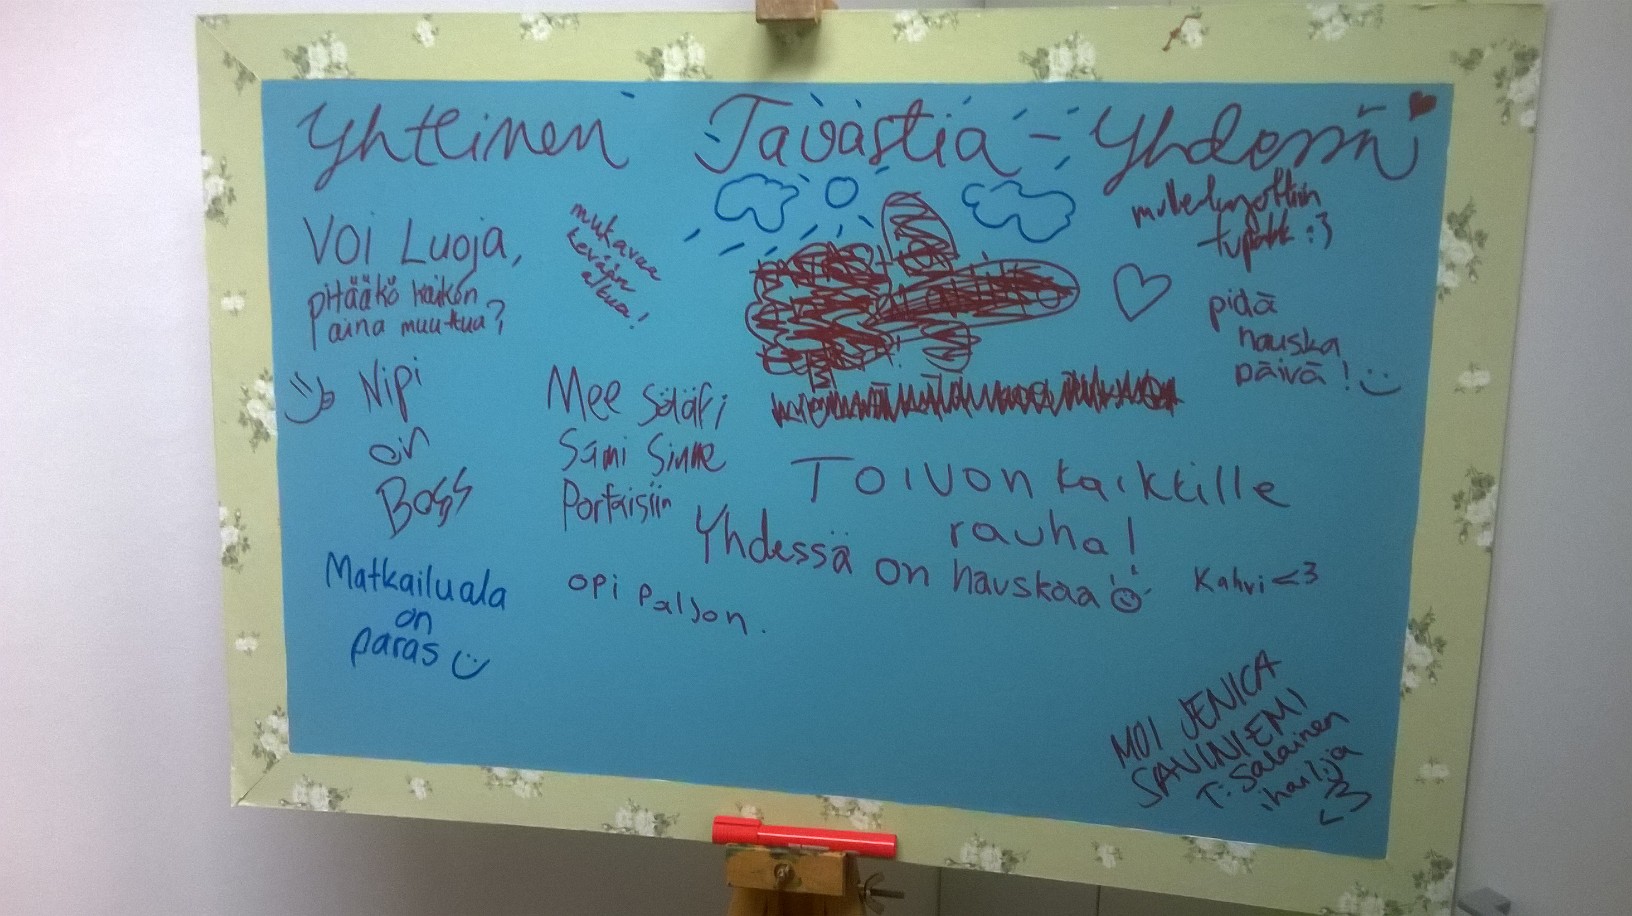 Yhteinen Tavastia - Yhdessä
Voi Luoja,
pitääkö kaiken
aina muuttua?
mukavaa
kevään
alkua!
tupakk :3
pidä
hauska
päivä! :)
Nipi
on
Boss
Mee
Sämi Sinne
Portaisiin
Toivon kaikkille
rauha!
Yhdessä on hauskaa
Kahvi <3
Matkailuala
on
paras :)
opi paljon.
MOI JENICA
SAVINIEMI
T: Salainen
ihailija
<3